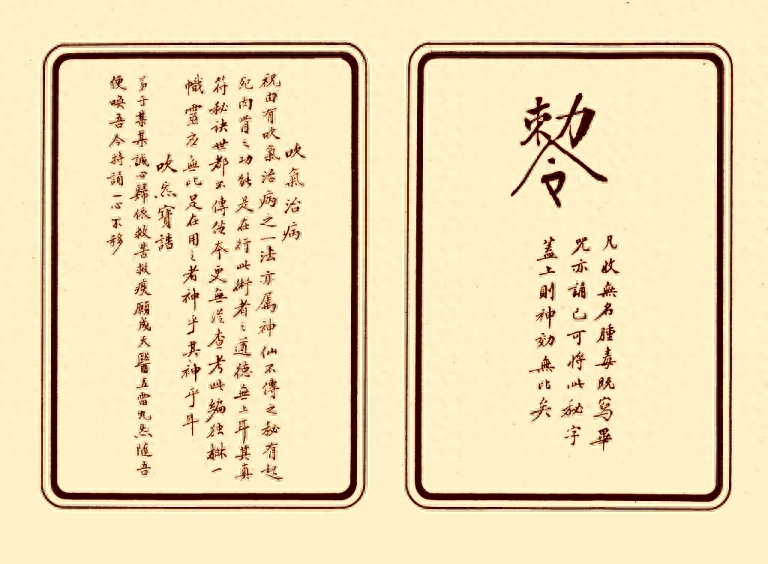 勅令
凡收無名腫毒既寫畢
咒亦誦已可將此秘字
蓋上則神効無比矣
吹氣治病
祝由有吹氣治病之一法亦屬神仙不傳之秘有起
死肉骨之功能是在行此術者之道德無上耳其真
符秘訣世都不傳從本更無從查考此編独樹一
幟靈應無比是在用之者神乎其神乎耳
吹炁寶誥
弟子某某誠心歸依救苦救疾願成天醫五雷九炁随吾
便喚吾今持誦一心不移